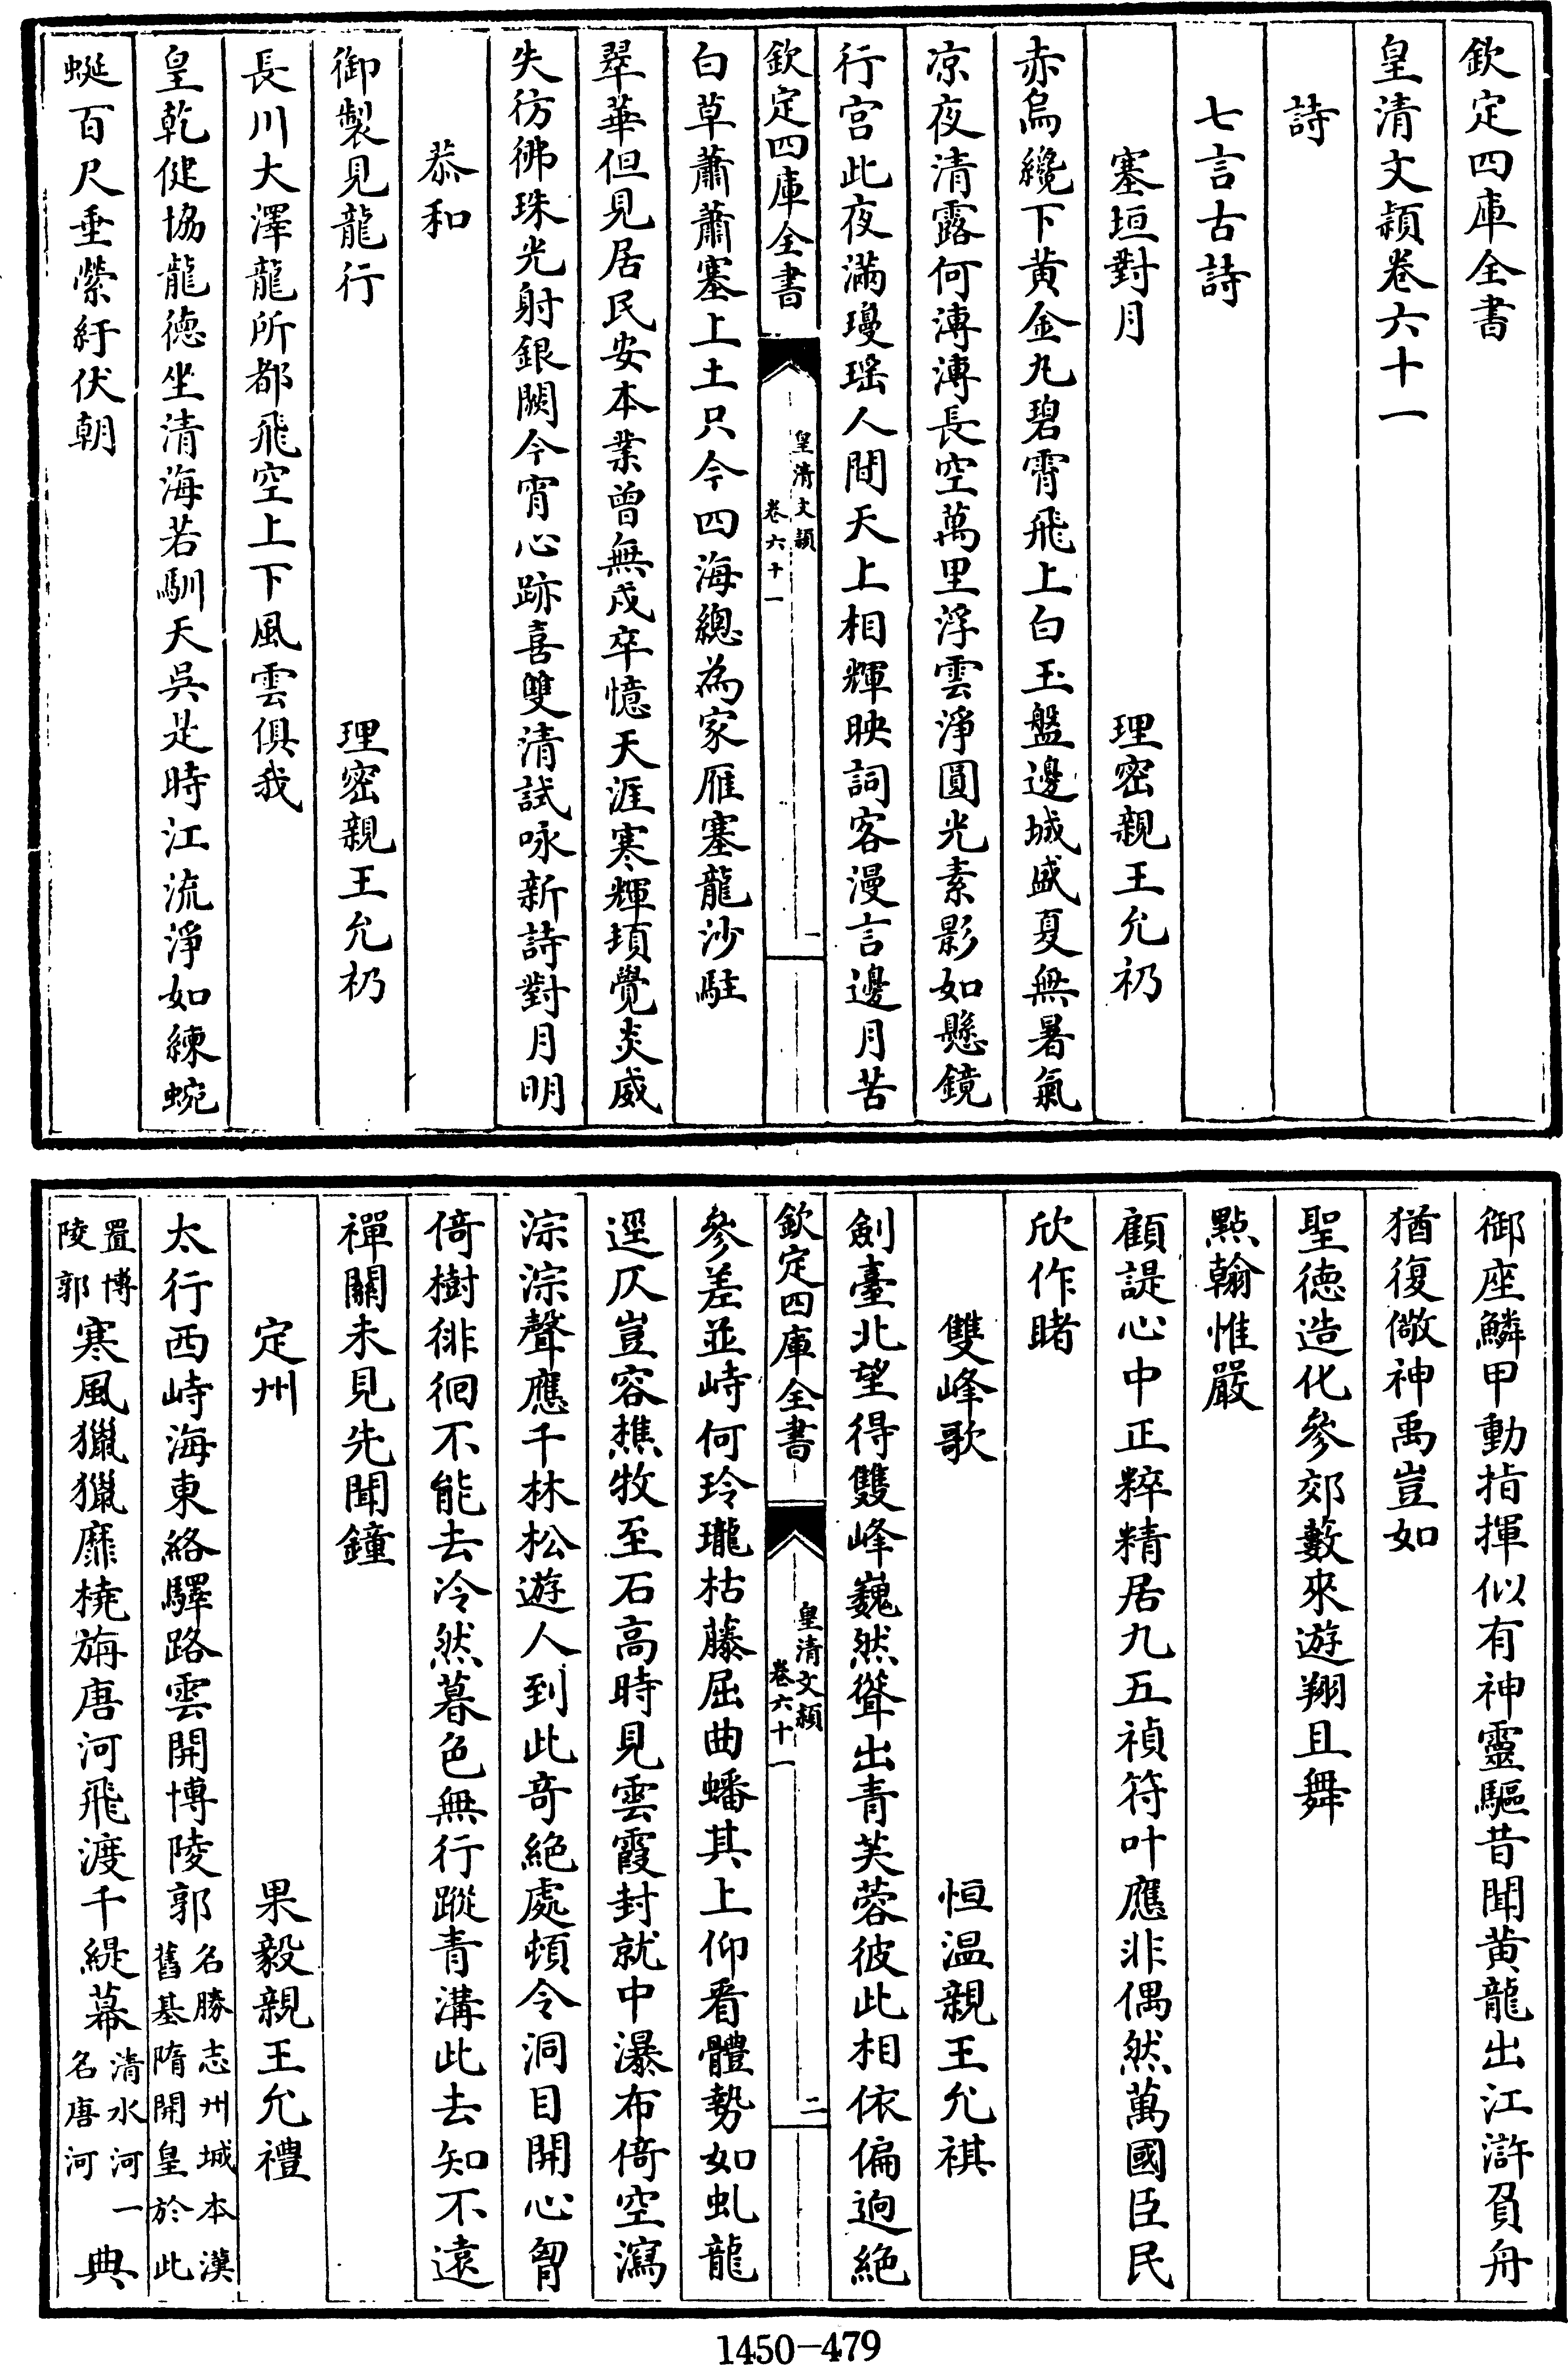 欽定四庫全書
皇清文穎卷六十一
詩
七言古詩
塞垣對月 理密親王允礽
赤烏纔下黄金丸碧霄飛上白玉盤邊城盛夏無暑氣
凉夜清露何漙漙長空萬里浮雲淨圓光素影如懸鏡
行宫此夜滿瓊瑶人間天上相輝映詞客漫言邊月苦
欽定四庫全書
皇清文穎
卷六十一
一
白草蕭蕭塞上土只今四海總為家雁塞龍沙駐
翠華但見居民安本業曾無戍卒憶天涯寒輝頊覺炎威
失彷彿珠光射銀闕今宵心跡喜雙清試咏新詩對月明
恭和
御製見龍行 理密親王允礽
長川大澤龍所都飛空上下風雲俱我
皇乾健協龍徳坐清海若馴天吳是時江流淨如練蜿
蜒百尺垂縈紆伏朝
御座鱗甲動指揮似有神靈驅昔聞黄龍出江滸負舟
猶復儆神禹豈如
聖徳造化參郊藪來遊翔且舞
點翰惟嚴
顧諟心中正粹精居九五禎符叶應非偶然萬國臣民
欣作睹
雙峰歌 恒温親王允祺
劍臺北望得雙峰巍然聳出青芙蓉彼此相依偏迥絶
欽定四庫全書
皇清文穎
卷六十一
二
參差並峙何玲瓏枯藤屈曲蟠其上仰看體勢如虬龍
逕仄豈容樵牧至石高時見雲霞封就中瀑布倚空瀉
淙淙聲應千林松遊人到此奇絶處頓令洞目開心胷
倚樹徘徊不能去冷然暮色無行蹤青溝此去知不遠
禪關未見先聞鐘
定州 果毅親王允禮
太行西峙海東絡驛路雲開博陵郭名勝志州城本漢舊基隋開皇於此
置博陵郭寒風獵獵靡橈旃唐河飛渡千緹幕清水河一名唐河典
1450-479